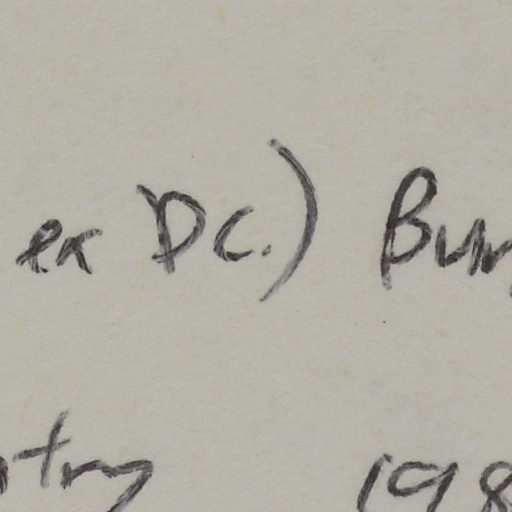 ex DC.) Bur
try 198